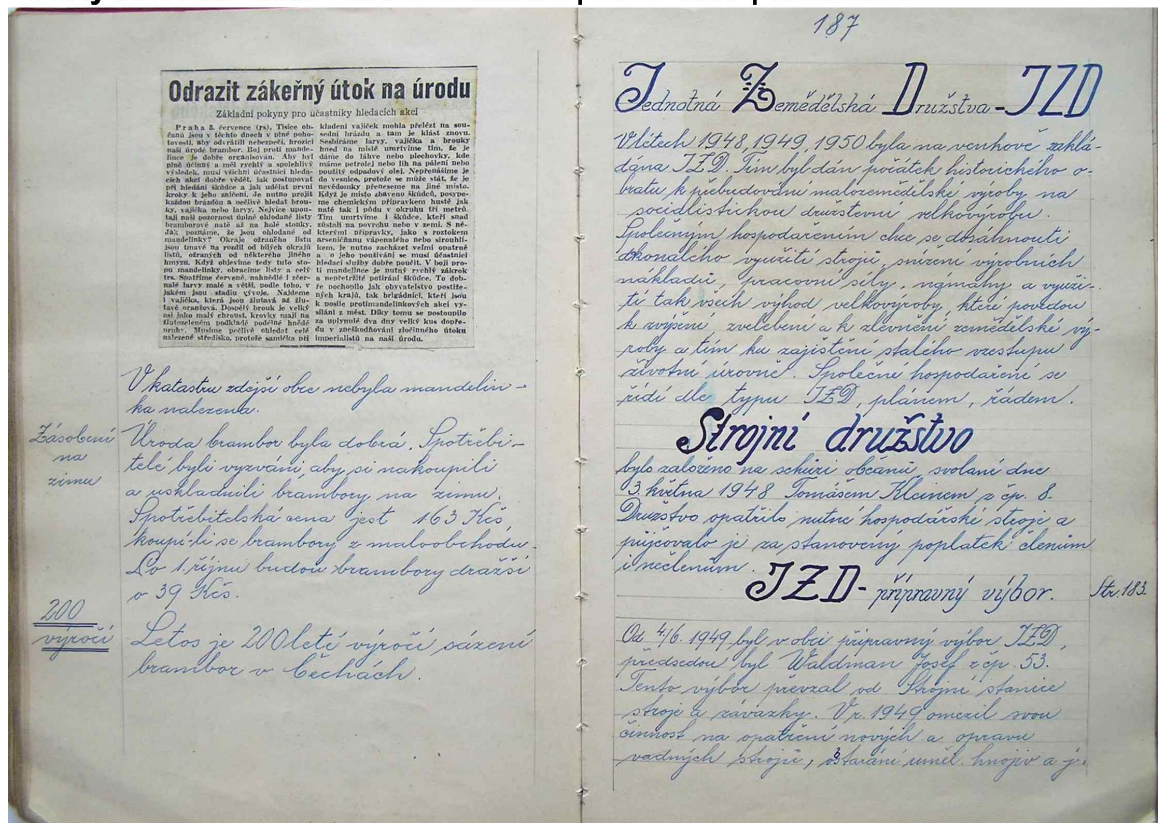 Odrazit zákeřný útok na úrodu
Základní pokyny pro účastníky hledacích akcí
Praha 3. července (rs). Tisíce ob-
čanů jsou v těchto dnech v plné poho-
tovosti, aby odvrátili nebezpečí, hrozící
naší úrodě brambor. Boj proti mande-
lince je dobře organisován. Aby byl
plně účinný a měl rychlý a spolehlivý
výsledek, musí všichni účastníci hleda-
cích akcí dobře vědět, jak postupovat
při hledání škůdce a jak udělat první
kroky k jeho zničení. Je nutno projít
každou brázdu a pečlivě hledat brou-
ky, vajíčka nebo larvy. Nejvíce upou-
tají naši pozornost úplně ohlodané listy
bramborové natě až na holé stonky.
Jak poznáme, že jsou ohlodané od
mandelinky? Okraje ožraného listu
jsou tmavé na rozdíl od bílých okrajů
listů, ožraných od některého jiného
hmyzu. Když objevíme tedy tuto sto-
pu mandelinky, obracíme listy a celý
trs. Spatříme červené, nahnědlé i zčer-
nalé larvy malé a větší, podle toho, v
jakém jsou stadiu vývoje. Najdeme
i vajíčka, která jsou žlutavá až žlu-
tavě oranžová. Dospělý brouk je velký
asi jako malý chroust, krovky mají na
žlutozeleném podkladě podélné hnědé
pruhy. Musíme pečlivě ohledat celé
nalezené středisko, protože samička při
kladení vajíček mohla přelézt na sou-
sední brázdu a tam je klást znovu.
Sesbíráme larvy, vajíčka a brouky
hned na místě umrtvíme tím, že je
dáme do láhve nebo plechovky, kde
máme petrolej nebo líh na pálení nebo
použitý odpadový olej. Nepřenášíme je
do vesnice, protože se může stát, že je
nevědomky přeneseme na jiné místo.
Když je místo zbaveno škůdců, posype-
me chemickým přípravkem hustě jak
natě tak i půdu v okruhu tří metrů.
Tím umrtvíme i škůdce, kteří snad
zůstali na povrchu nebo v zemi. S ně-
kterými přípravky, jako s roztokem
arseničnanu vápenatého nebo
je nutno zacházet velmi opatrně
a o jeho používání se musí účastníci
hledací služby dobře poučit. V boji pro-
ti mandelince je nutný rychlý zákrok
a nepřetržité potírání škůdce. To dob-
ře pochopilo jak obyvatelstvo postiže-
ných krajů, tak brigádníci, kteří jsou
k podle protimandelinkových akcí vy-
sláni z měst. Díky tomu se postoupilo
za uplynulé dva dny velký kus dopře-
du v zneškodňování zločinného útoku
imperialistů na naši úrodu.
V katastru zdejší obce nebyla mandelin-
ka nalezena.
Zásobení
na
zimu
Úroda brambor byla dobrá. Spotřebi-
telé byli vyzváni, aby si nakoupili
a uskladnili brambory na zimu.
Spotřebitelská cena jest 163 Kčs,
koupí-li se brambory z maloobchodu.
Po 1. říjnu budou brambory dražší
o 39 Kčs.
200
výročí
Letos je 200 letí výročí sázení
brambor v Čechách.
187
Jednotná Zemědělská Družstva - JZD
V létech 1948, 1949, 1950 byla na venkově zaklá-
dána JZD. Tím byl dán počátek historického o-
bratu k přebudování malozemědělské výroby na
socialistickou družstevní velkovýrobu.
Společným hospodařením chce se dosáhnouti
dokonalého využití strojů, snížení výrobních
nákladů, pracovní síly, námahy a využi-
tí tak všech výhod velkovýroby, které povedou
k zvýšení, zvelebení a k zlevnění zemědělské vý-
roby a tím ku zajištění stálého vzestupu
životní úrovně. Společné hospodaření se
řídí dle typu JZD, plánem, řádem.
Strojní družstvo
bylo založeno na schůzi občanů, svolané dne
3. května 1948 Tomášem Kleinem z čp. 8.
Družstvo opatřilo nutné hospodářské stroje a
půjčovalo je za stanovený poplatek členům
i nečlenům.
JZD - přípravný výbor.
Str. 183
Od 4/6. 1949 byl v obci přípravný výbor JZD,
předsedou byl Waldman Josef z čp. 53.
Tento výbor převzal od Strojní stanice
stroje a závazky. V r. 1949 omezil svou
činnost na opatření nových a opravu
vadných strojů, obstarání uměl. hnojiv a j.